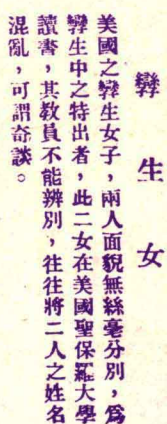 孿生女
美國之孿生女子，兩人面貌無絲毫分別，爲
孿生中之特出者，此二女在美國聖保羅大學
讀書，其教員不能辨別，往往將二人之姓名
混亂，可謂奇談。